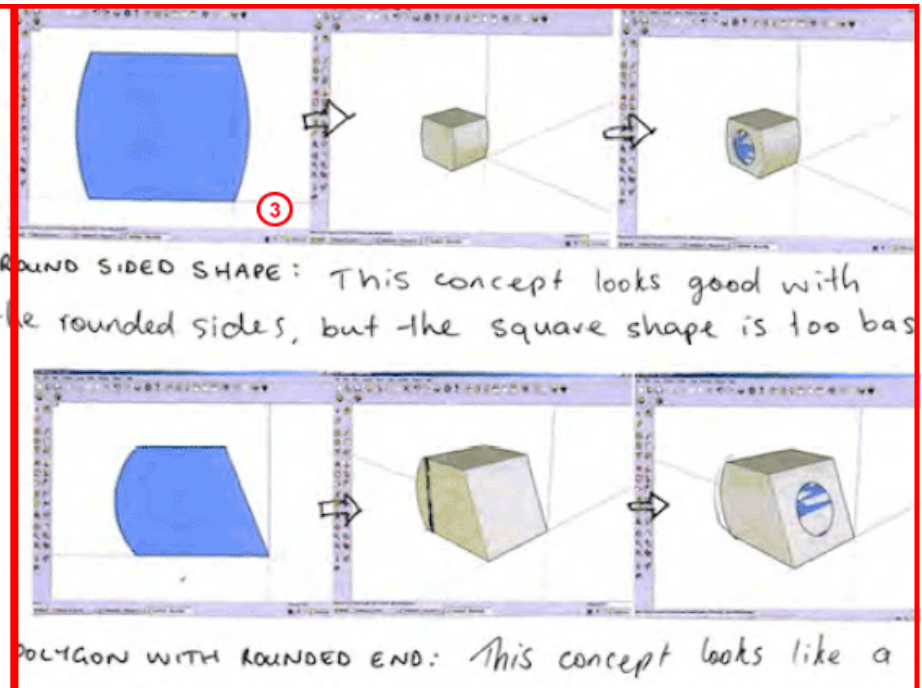 3
ROUND SIDED SHAPE: This concept looks good with
the rounded sides, but the square shape is too bas
POLYGON WITH ROUNDED END: This concept looks like a